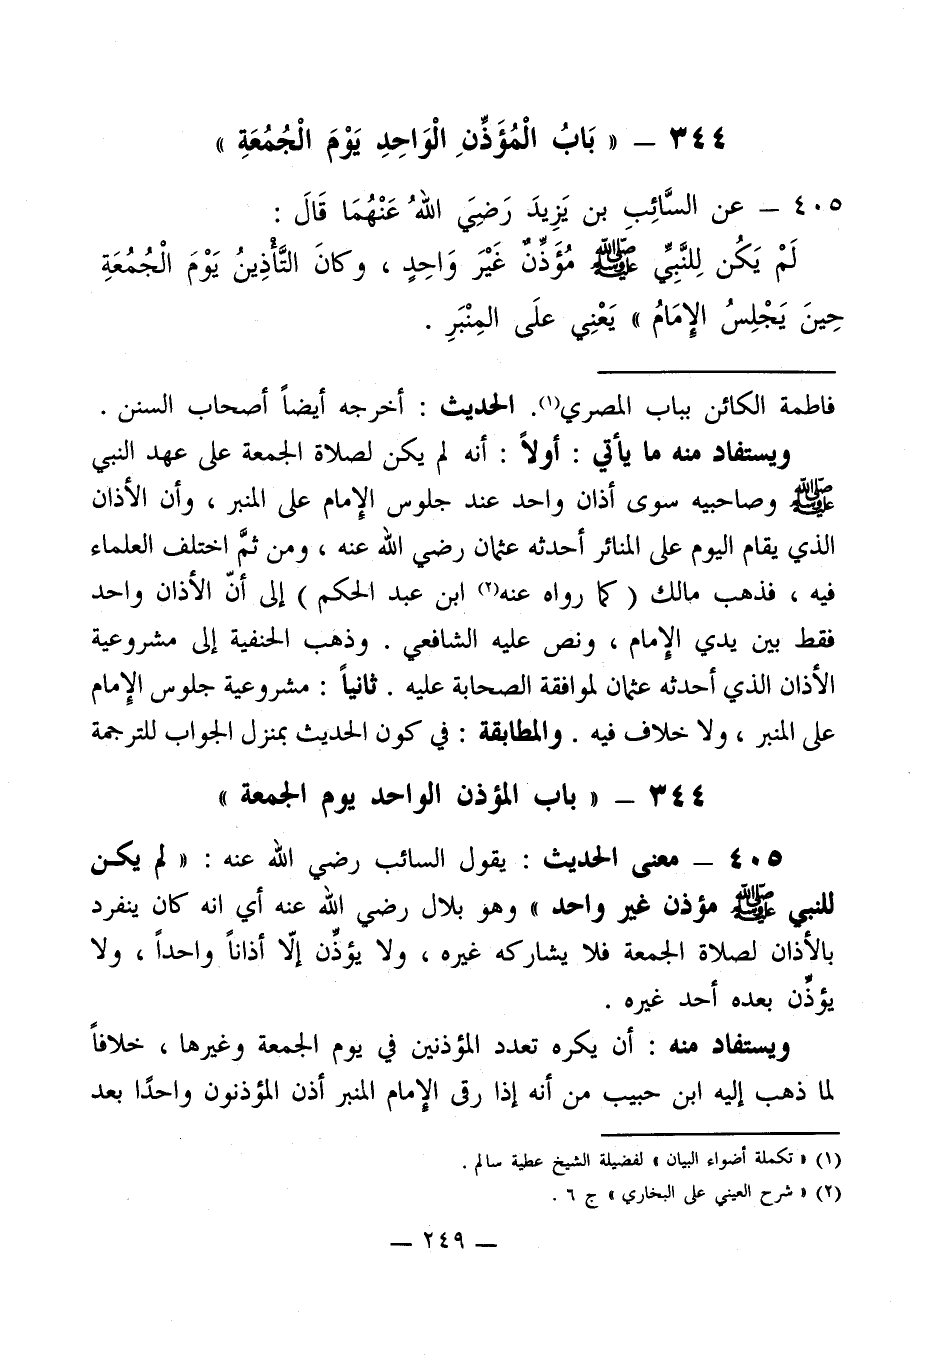 ٣٤٤ – « بَابُ الْمُؤَذِّنِ الْوَاحِدِ يَوْمَ الْجُمُعَةِ »
٤٠٥ – عن السَّائِبِ بن يَزِيدَ رَضِيَ اللهُ عَنْهُمَا قَالَ :
لَمْ يَكُن لِلنَّبِّي ﷺ مُؤَذِّنٌ غَيْرَ وَاحِدٍ ، وكانَ التَّأْذِينُ يَوْمَ الْجُمُعَةِ
حِينَ يَجْلِسُ الإِمَامُ » يَعْنِي علَى المِنْبَرِ .
فاطمة الكائن بباب المصري(١). الحديث : أخرجه أيضاً أصحاب السنن .
ويستفاد منه ما يأتي : أولاً : أنه لم يكن لصلاة الجمعة على عهد النبي
ﷺ وصاحبيه سوى أذان واحد عند جلوس الإمام على المنبر ، وأن الأذان
الذي يقام اليوم على المنائر أحدثه عثمان رضي الله عنه ، ومن ثمَّ اختلف العلماء
فيه ، فذهب مالك ( كما رواه عنه(٢) ابن عبد الحكم ) إلى أنّ الأذان واحد
فقط بين يدي الإمام ، ونص عليه الشافعي . وذهب الحنفية إلى مشروعية
الأذان الذي أحدثه عثمان لموافقة الصحابة عليه . ثانياً : مشروعية جلوس الإمام
على المنبر ، ولا خلاف فيه . والمطابقة : في كون الحديث بمنزل الجواب للترجمة
٣٤٤ – « باب المؤذن الواحد يوم الجمعة »
٤٠٥ – معنى الحديث : يقول السائب رضي الله عنه : « لم يكن
للنبي ﷺ مؤذن غير واحد » وهو بلال رضي الله عنه أي انه كان ينفرد
بالأذان لصلاة الجمعة فلا يشاركه غيره ، ولا يؤذِّن إلّا أذاناً واحداً ، ولا
يؤذِّن بعده أحد غيره .
ويستفاد منه : أن يكره تعدد المؤذنين في يوم الجمعة وغيرها ، خلافاً
لما ذهب إليه ابن حبيب من أنه إذا رقى الإمام المنبر أذن المؤذنون واحدًا بعد
(١) « تكملة أضواء البيان » لفضيلة الشيخ عطية سالم .
(٢) « شرح العيني على البخاري » ج ٦ .
– ٢٤٩ –